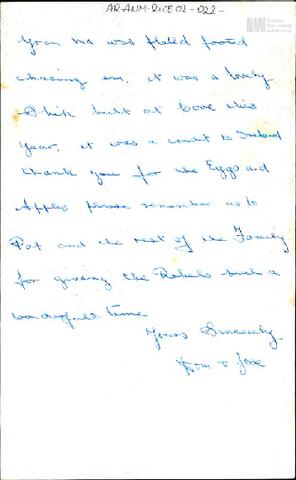 AR-ANM-RICE 02-022-
Gran Ma was flated footed
chasing em, it was a lovely
Ship built at Cove this
Year, it was a credit to Ireland
thank you for the Eggs and
Apples please remember us to
Pat and the rest of the Family
for giveing the Rebels such a
wonderfull time
Yours Sincerely
Tom & Joe